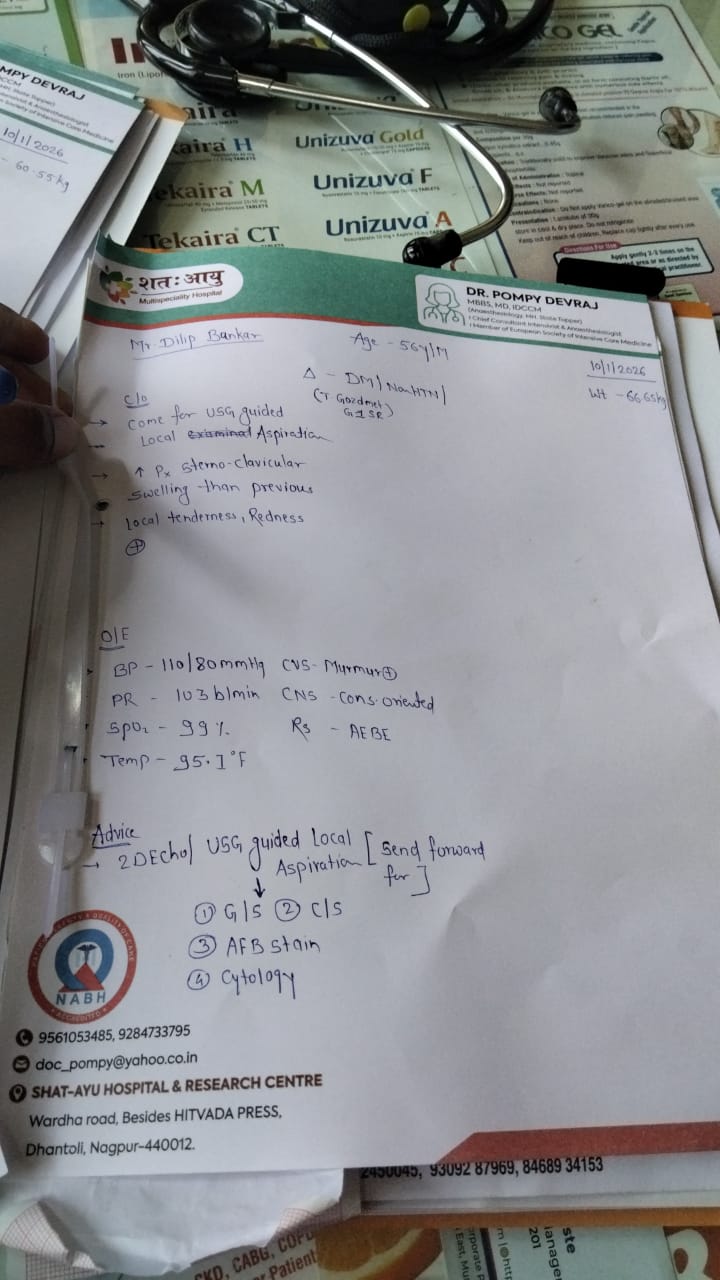 MPY DEVRAJ
10/1/2026
60.55kg
Iron (Lipo
CO GEL
kaira H
Unizuva Gold
ekaira M
Unizuva F
Tekaira CT
Unizuva A
Directions For Use
शतः आयु
Multispeciality Hospital
DR. POMPY DEVRAJ
MBBS, MD, IDCCM
(Anaesthesiology, MH. State Topper)
Chief Consultant Intensivist & Anaesthesiologist
Member of European Society of Intensive Care Medicine
Mr. Dilip Bankar
Age - 56y/M
10/1/2026
Wt - 66.65kg
Δ - DM/
C/o
→ Come for USG guided
Local Aspiration
→ ↑ Px Sterno-clavicular
Swelling than previous
→ Local tenderness, Redness
⊕
O/E
BP - 110/80mmHg CVS - Murmur⊕
PR - 103 b/min CNS - Cons. oriented
SpO₂ - 99% Rs - AEBE
Temp - 95.1°F
Advice
→ 2DEcho/ USG guided Local Aspiration [Send forward for]
↓
① G/S ② C/S
③ AFB stain
④ Cytology
NABH
ACCREDITED
9561053485, 9284733795
doc_pompy@yahoo.co.in
SHAT-AYU HOSPITAL & RESEARCH CENTRE
Wardha road, Besides HITVADA PRESS,
Dhantoli, Nagpur-440012.
2450045, 93092 87969, 84689 34153
CKD, CABG, COPD
Patient